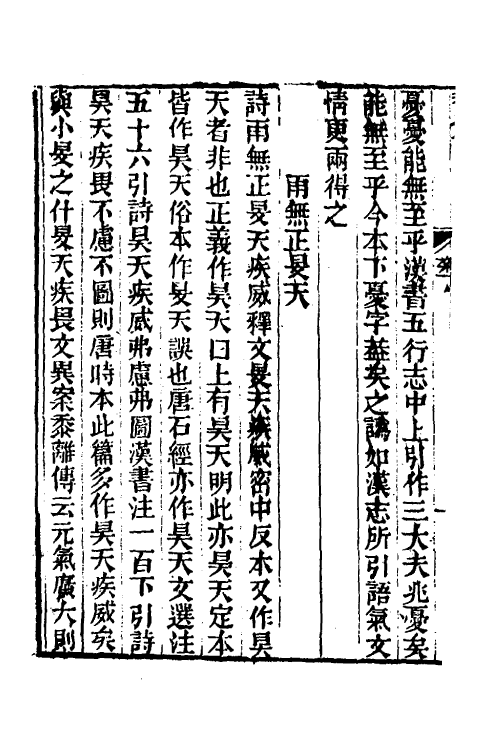 憂憂能無至乎漢書五行志中上引作三大夫兆憂矣
能無至乎今本下憂字葢矣之譌如漢志所引語氣文
情更兩得之
雨無正旻天
詩雨無正旻天疾威釋文旻天疾威密巾反本又作昊
天者非也正義作昊天曰上有昊天明此亦昊天定本
皆作昊天俗本作旻天誤也唐石經亦作昊天文選注
五十六引詩昊天疾威弗慮弗圖漢書注一百下引詩
昊天疾畏不慮不圖則唐時本此篇多作昊天疾威矣
與小旻之什旻天疾畏文異案黍離傳云元氣廣大則